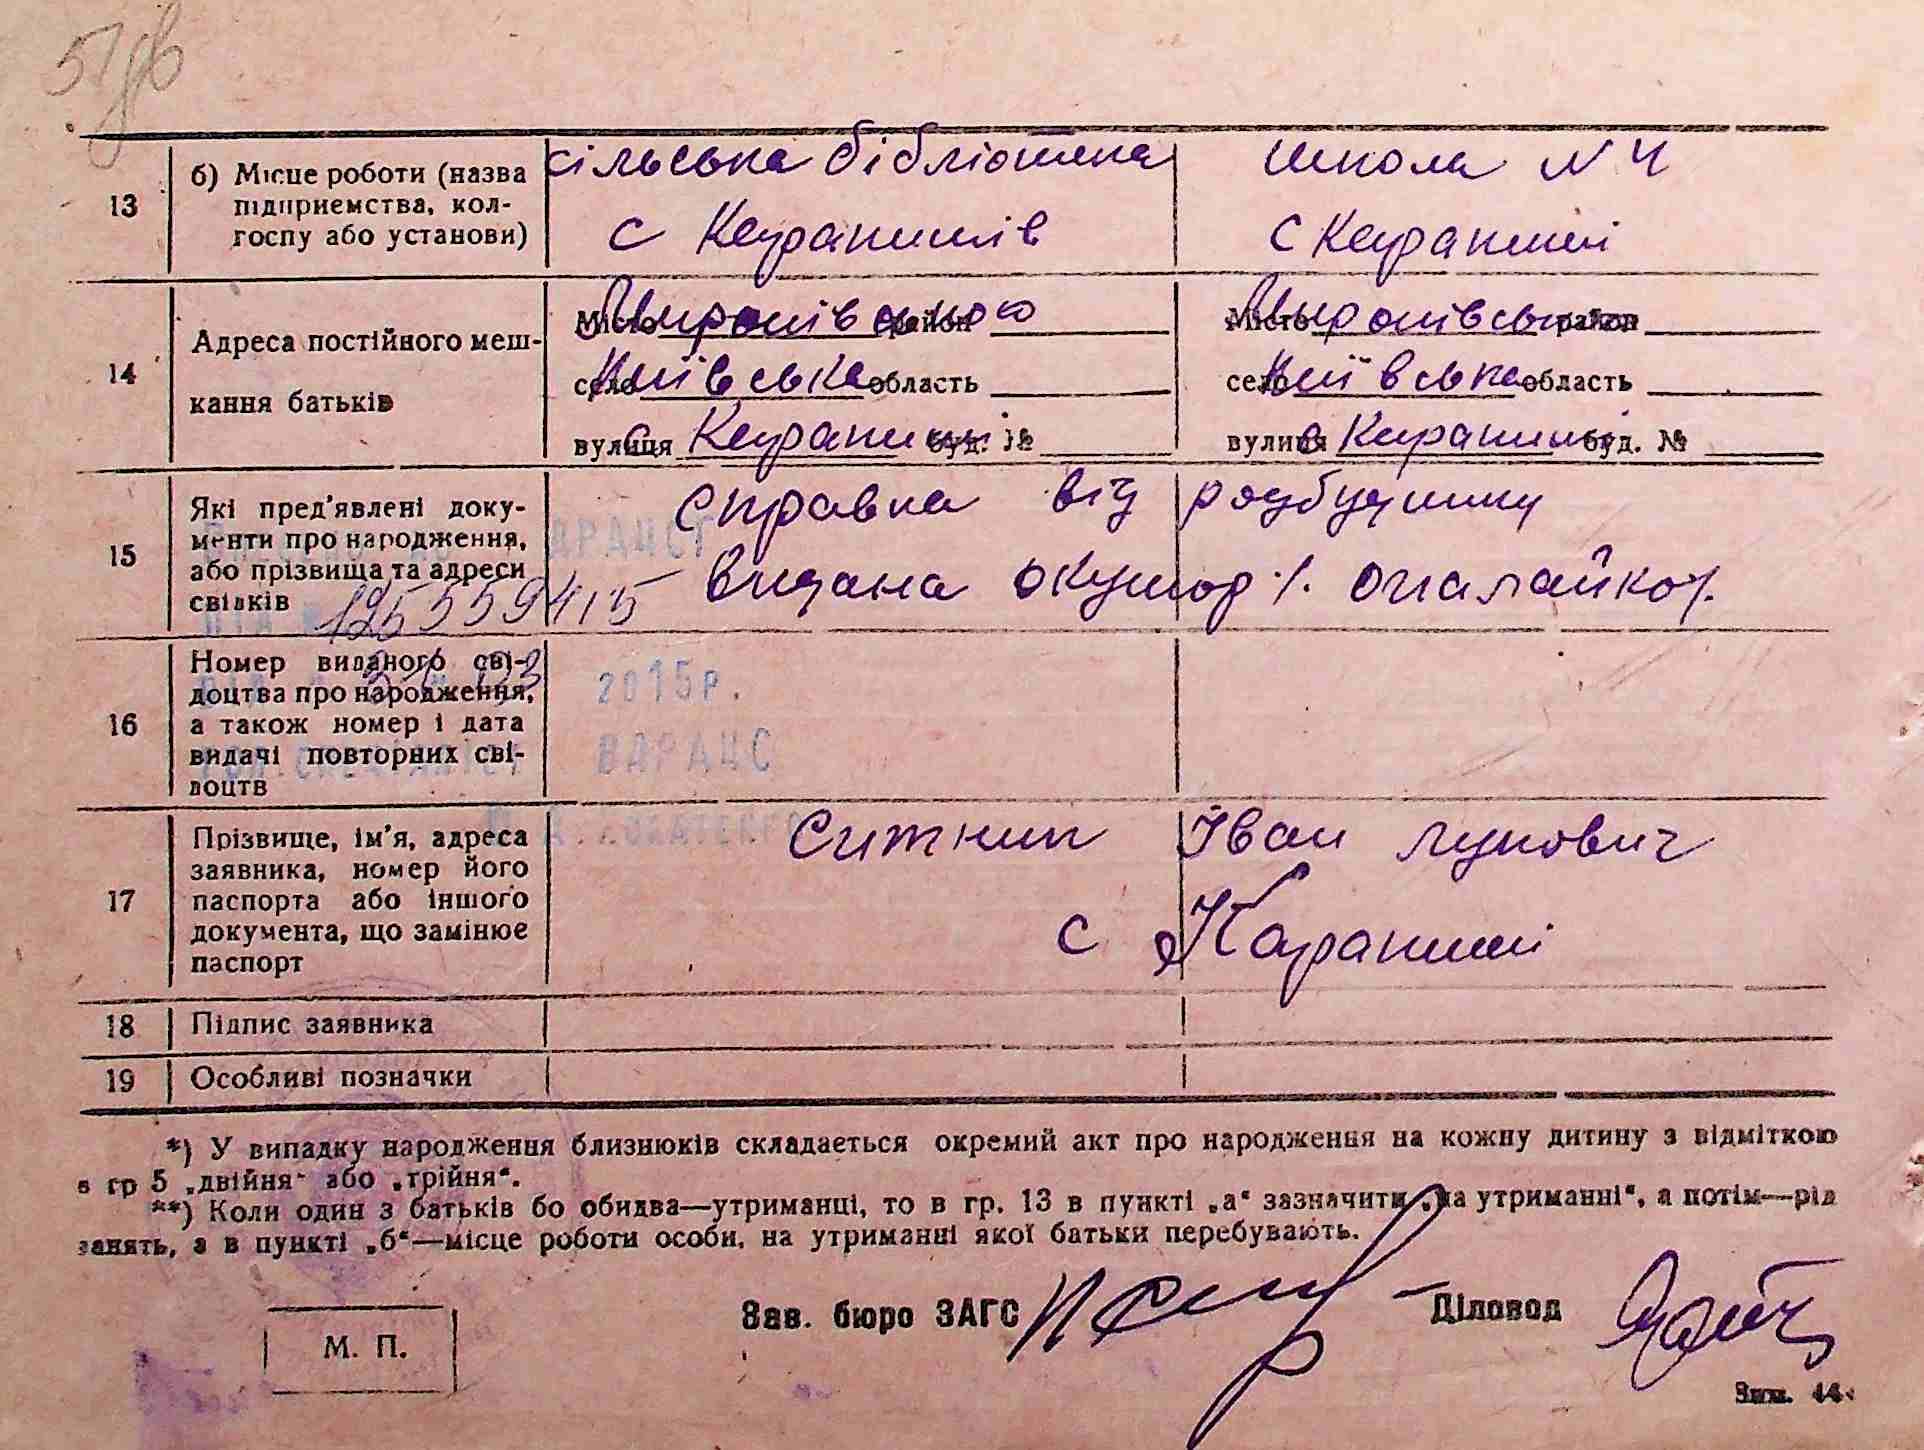 51
13
б) Місце роботи (назва підприємства, колгоспу або установи)
сільська бібліотека
с Карапишів
школа N 4
с Карапиші
14
Адреса постійного мешкання батьків
Місто Миронівського район
село Київська область
вулиця с Карапиші буд. №
Місто Миронівського район
село Київська область
вулиця с Карапиші буд. №
15
Які пред'явлені документи про народження, або прізвища та адреси свідків
справка від родбудинку
видана
ДРАЦСГ
16
Номер виданого свідоцтва про народження, а також номер і дата видачі повторних свідоцтв
2015р.
ВДРАЦС
17
Прізвище, ім'я, адреса заявника, номер його паспорта або іншого документа, що замінює паспорт
Ситник Іван Лукович
с Карапиші
18
Підпис заявника
19
Особливі позначки
*) У випадку народження близнюків складається окремий акт про народження на кожну дитину з відміткою
в гр 5 „двійня" або „трійня".
**) Коли один з батьків бо обидва—утриманці, то в гр. 13 в пункті „а" зазначити „на утриманні", а потім—рід
занять, а в пункті „б"—місце роботи особи, на утриманні якої батьки перебувають.
Зав. бюро ЗАГС
Діловод
М. П.
Зам. 44